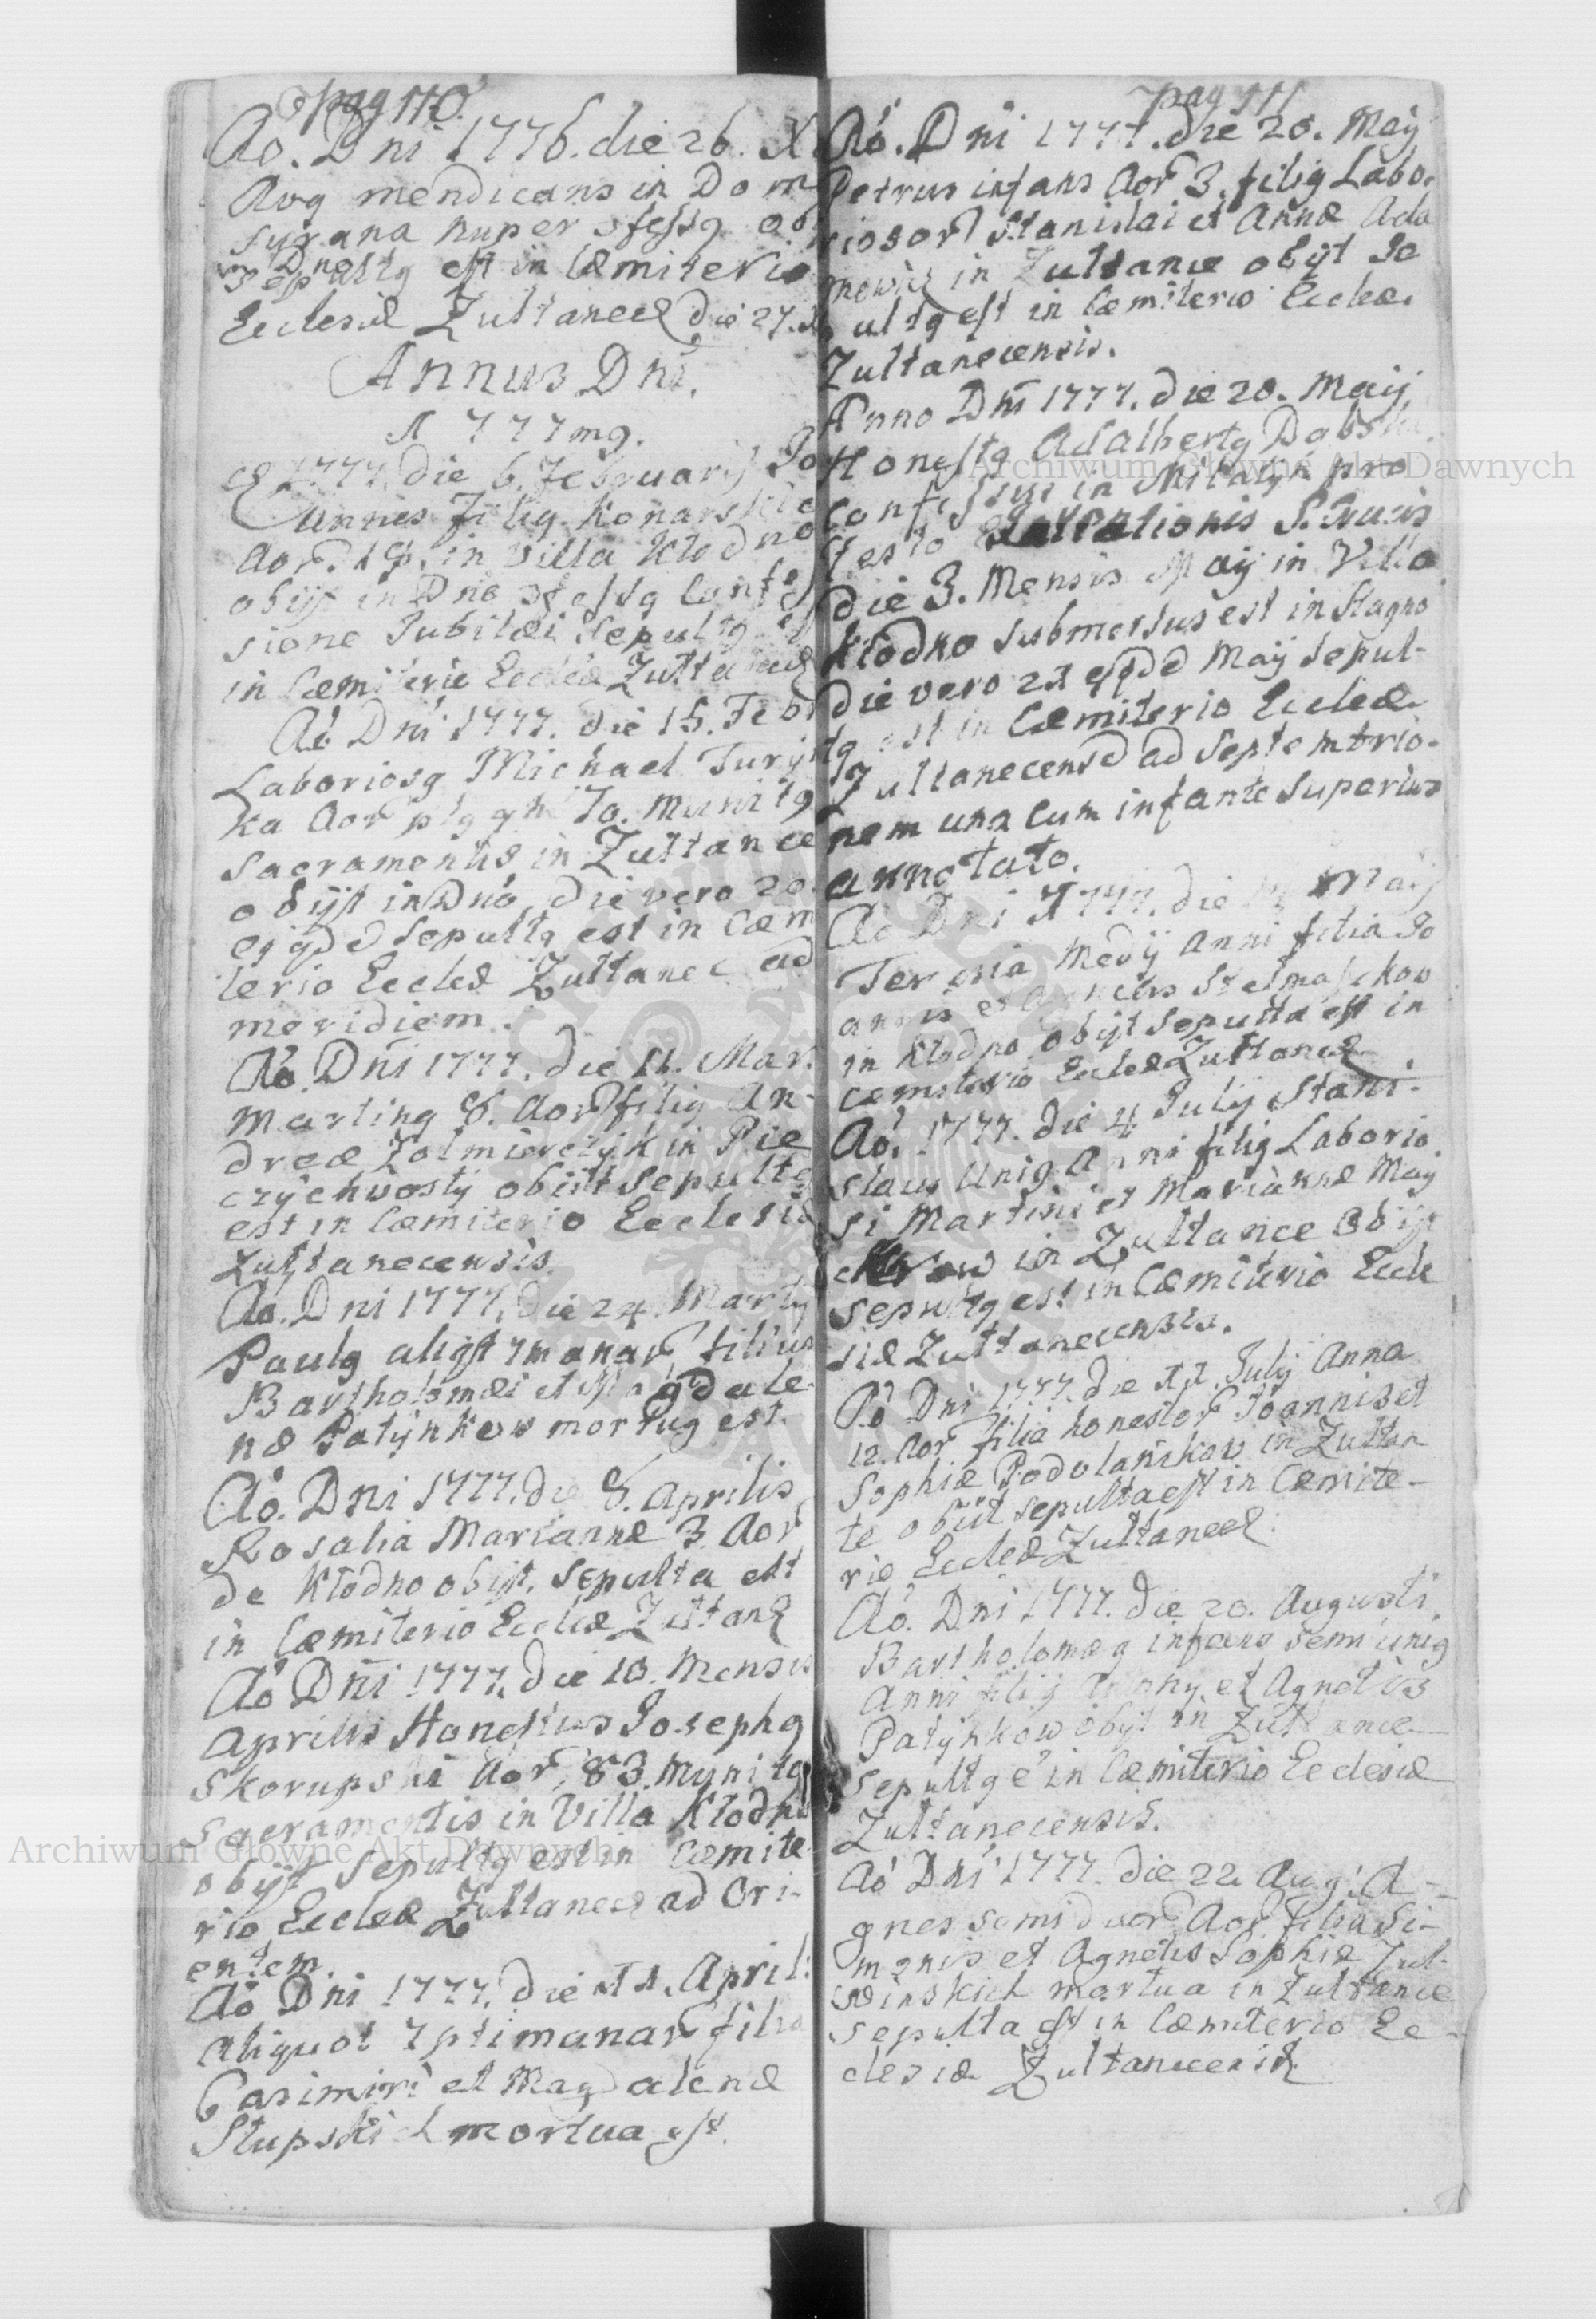 pag 110.
Ao. Dni 1776. die 26. X
Avg mendicans in Dom
surana nuper ofessg ob
in Dno
sepultg est in Cæmiterio
Ecclesiæ Zultanec die 27. X
Annus Dni.
1777mg.
1777. die 6. Februarij Jo
annes filig Konarskie
Aor in Villa Kłodno
obijt in Dno Confes
sione Jubilæi Sepultg est
in Cæmiterio Eccleæ Zultanec
Ao Dni 1777. die 15. Febr
Laboriosg Michael Turij
ka Aor plg qm 70. Munitg
Sacramentis in Zultance
obijt in Dno, die vero 20.
ejqd Sepultg est in Cæmi
terio Eccleæ Zultanec ad
meridiem.
Ao. Dni 1777. die 11. Mar.
Marting 8. Aor filig An-
dreæ Zolmierczyk in Pie
czychwosty obiit sepultg
est in Cæmiterio Ecclesiæ
Zultanecensis
Ao. Dni 1777. die 24. Martij
Paulg aliqt 7manar filius
Bartholomæi et Magdale
næ Patynkow mortug est.
Ao. Dni 1777. die 8. Aprilis
Rosalia Mariannæ 3. Aor
de Kłodno obijt, sepulta est
in Cæmiterio Eccleæ Zultan
Ao Dni 1777. die 10. Mensis
Aprilis Honestus Josephg
Skorupski Aor, 83. Munitg
Sacramentis in Villa Kłodno
obijt Sepultg est in Cæmite
rio Eccleæ Zultanec ad Ori-
entem.
Ao Dni 1777. die 11. April:
aliquot 7ptimanar filia
Casimiri et Magdalenæ
Słupskich mortua est.
pag 111
Ao. Dni 1777. die 20. Maij
Petrus infans Aor 3. filig Labo-
riosor Stanislai et Annæ Ada
mowicz in Zultance obijt Se
ultg est in Cæmiterio Eccleæ
Zultanecensis.
Anno Dni 1777. die 20. Maij
Honestg Adalbertg Dabski
Confessg in Milatyn pro
festo Inventionis S. Crucis
die 3. Mensis Maij in Villa
Kłodno submersus est in Stagno
die vero 21 ejqd Maij sepul-
tg est in Cæmiterio Eccleæ
Zultanecens ad Septemtrio-
nem una cum infante superius
annotato.
Ao Dni 1777. die Maij
Teresia Medij anni filia Jo
annis et Agnetis Stelmaszkow
in Kłodno obijt sepulta est in
Cæmiterio Eccleæ Zultanec
Ao. 1777. die 4 Julij Stani-
slaus Unig Anni filig Laborio
si Martini et Mariannæ Maij
in Zultance Obijt
sepultg est in Cæmiterio Eccle
siæ Zultanecensis.
Ao Dni 1777. die 11. Julij Anna
12. Aor filia honestor Joannis et
Sophiæ Podolanskow in Zultan
te obiit sepulta est in Cæmite-
rio Eccleæ Zultanec
Ao. Dni 1777. die 20. Augusti
Bartholomæg infans semi unig
Anni filig et Agnetis
Patynkow obijt in Zultance
sepultg e in Cæmiterio Ecclesiæ
Zultanecensis.
Ao Dni 1777. die 22 Aug. A-
gnes semi duor Aor filia Si-
monis et Agnetis Sophiæ Zul-
winskich mortua in Zultance
sepulta est in Cæmiterio Ec-
clesiæ Zultanecensis
Archiwum Główne Akt Dawnych
Archiwum Główne Akt Dawnych